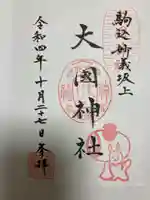 駒込妙義坂上
大国神社
令和四年十月二十七日参拝